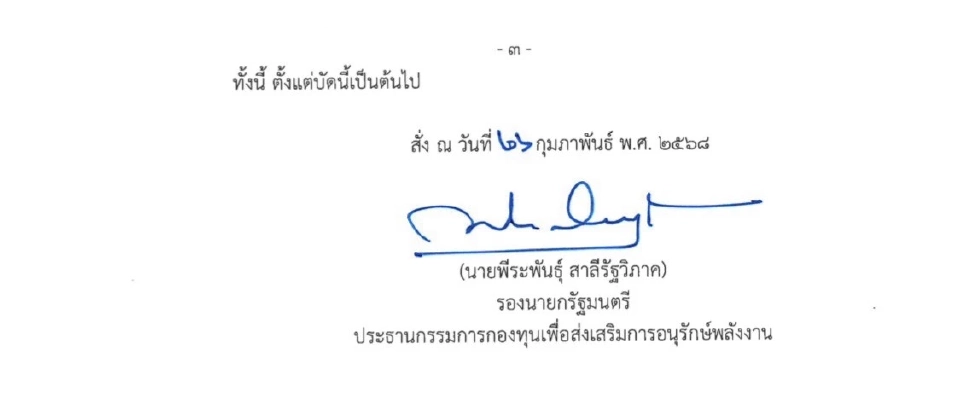 - ๓ -
ทั้งนี้ ตั้งแต่บัดนี้เป็นต้นไป
สั่ง ณ วันที่ ๒๖ กุมภาพันธ์ พ.ศ. ๒๕๖๘
(นายพีระพันธุ์ สาลีรัฐวิภาค)
รองนายกรัฐมนตรี
ประธานกรรมการกองทุนเพื่อส่งเสริมการอนุรักษ์พลังงาน